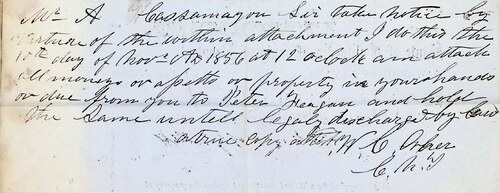 Mr A Cassamayou Sir take notice by
virtue of the within attachment I do this the
10th day of Novr AD 1856 at 12 oclock am attach
all moneys or assetts or property in your hands
or due from you to Peter Feagan and hold
the same untell legaly discharged by Law
a true copy attest W C